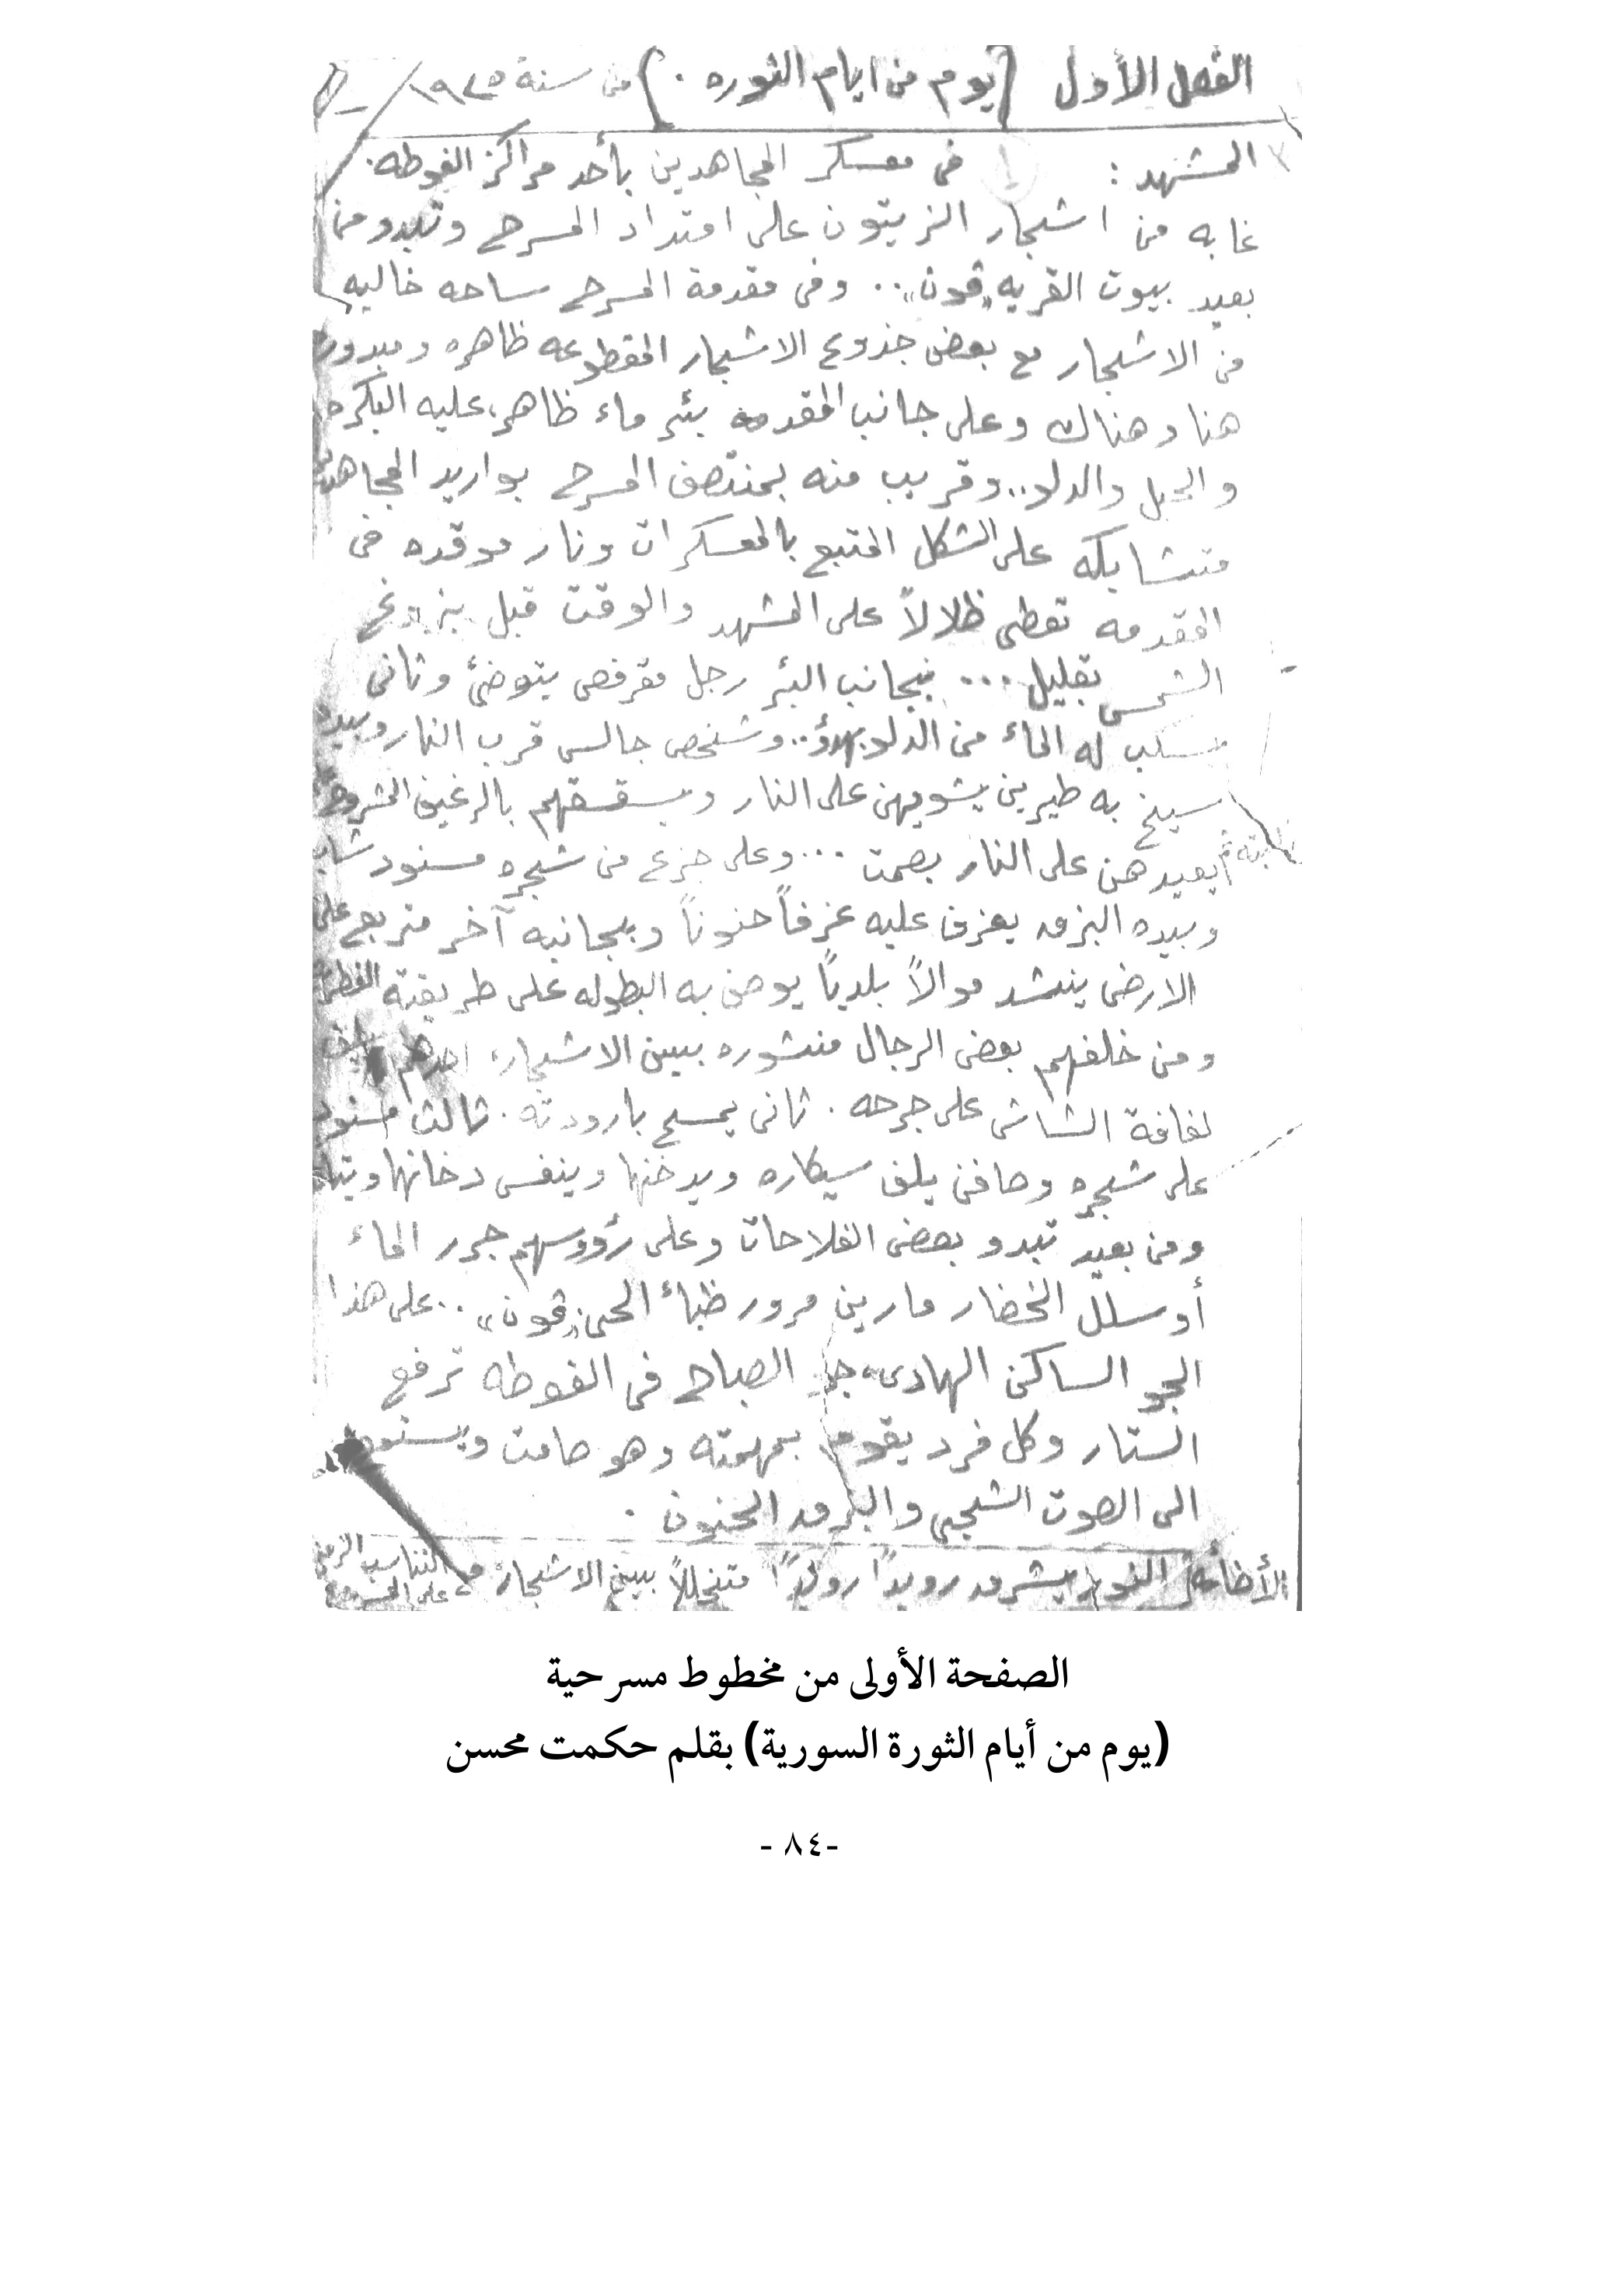 الفصل الأول (يوم من ايام الثوره .) من سنة ١٩٢٥
المشهد : في معسكر المجاهدين بأحد مراكز الغوطه.
غابه من اشجار الزيتون على امتداد المسرح وتبدو من
بعيد بيوت القريه «فون».. وفي مقدمة المسرح ساحه خاليه
من الاشجار مع بعض جذوع الاشجار المقطوعه ظاهره
هنا وهناك وعلى جانب المقدمه بئر ماء ظاهر، عليه البكره
والحبل والدلو.. وقريب منه بمنتصف المسرح بواريد المجاهدين
متشابكه على الشكل المتبع بالمعسكرات ونار موقده في
المقدمه تعطي ظلالاً على المشهد والوقت قبل بزوغ
الشمس بقليل ... بجانب البئر رجل مقرفص يتوضئ وثاني
يسكب له الماء من الدلو بهدؤ.. وشخص جالس قرب النار وبيده
سيخ به طيرين يشويهن على النار ويسقسقهم بالرغيف
يعيدهن على النار بصمت ... وعلى جزع من شجره مسنود شاب
وبيده البزق يعزف عليه عزفاً حنوناً وبجانبه آخر متربع على
الارض ينشد موالاً بلدياً يوصف به البطوله على طريقته
ومن خلفهم بعض الرجال منشوره بين الاشجار، احدهم يلف
لفافة الشاش على جرحه . ثاني يمسح بارودته . ثالث مسنود
على شجره وصافن يلف سيكاره ويدخنها وينفس دخانها
ومن بعيد تبدو بعض الفلاحات وعلى رؤوسهم جرر الماء
أو سلل الخضار مارين مرور ظباء الحي «فون».. على هذا
الجو الساكن الهادىء جو الصباح في الغوطه ترفع
الستار وكل فرد يقوم بمهمته وهو صامت ويستمع
الى الصوت الشجي والبزق الحنون .
الأضاءة النور يشرق رويداً رويداً متخللاً بين الاشجار مع التناسب الزمني
على المسرح
الصفحة الأولى من مخطوط مسرحية
(يوم من أيام الثورة السورية) بقلم حكمت محسن
-٨٤ -